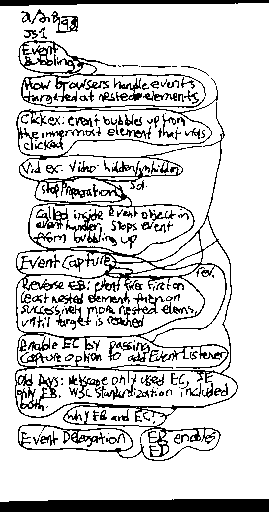 JS1 98
Event
Bubbling
How browsers handle events
targeted at nested elements
Click ex: event bubbles up from
the innermost element that was
clicked
Vid ex: Video hidden/unhidden
stopPropagation Sol.
Called inside event object in
event handler, stops event
from bubbling up
Event Capture
rev.
Reverse EB: event fires first on
least nested element then on
successively more nested elems,
until target is reached
Enable EC by passing
capture option to addEventListener
Old Days: Netscape only used EC, IE
only EB. W3C standardization included
both.
why EB and EC?
Event Delegation
EB enables
ED